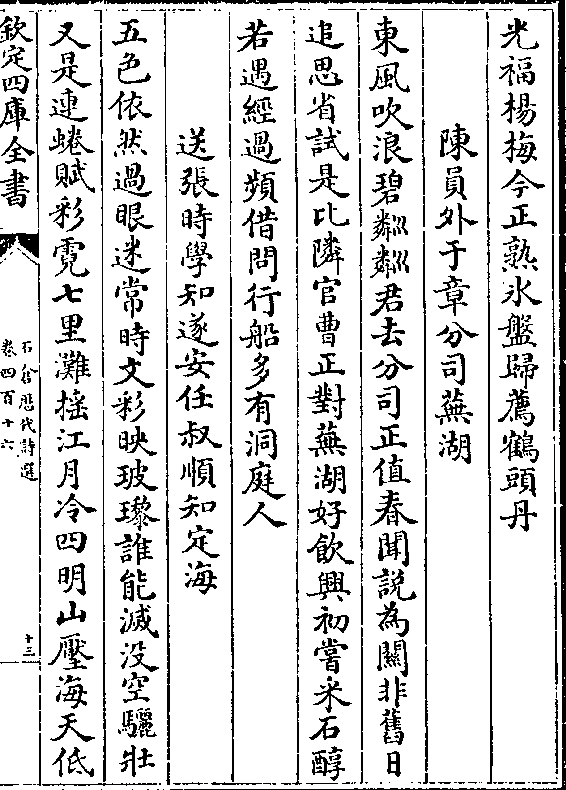 光福楊梅今正熟氷盤歸薦鶴頭丹
陳員外于章分司蕪湖
東風吹浪碧粼粼君去分司正值春聞説為關非舊日
追思省試是比隣官曹正對蕪湖好飲興初嘗米石醇
若遇經過頻借問行船多有洞庭人
送張時學知遂安任叔順知定海
五色依然過眼迷常時文彩映玻瓈誰能滅没空驪壯
又是連蜷賦彩霓七里灘揺江月冷四明山壓海天低
欽定四庫全書
石倉歴代詩選
卷四百十六
十三